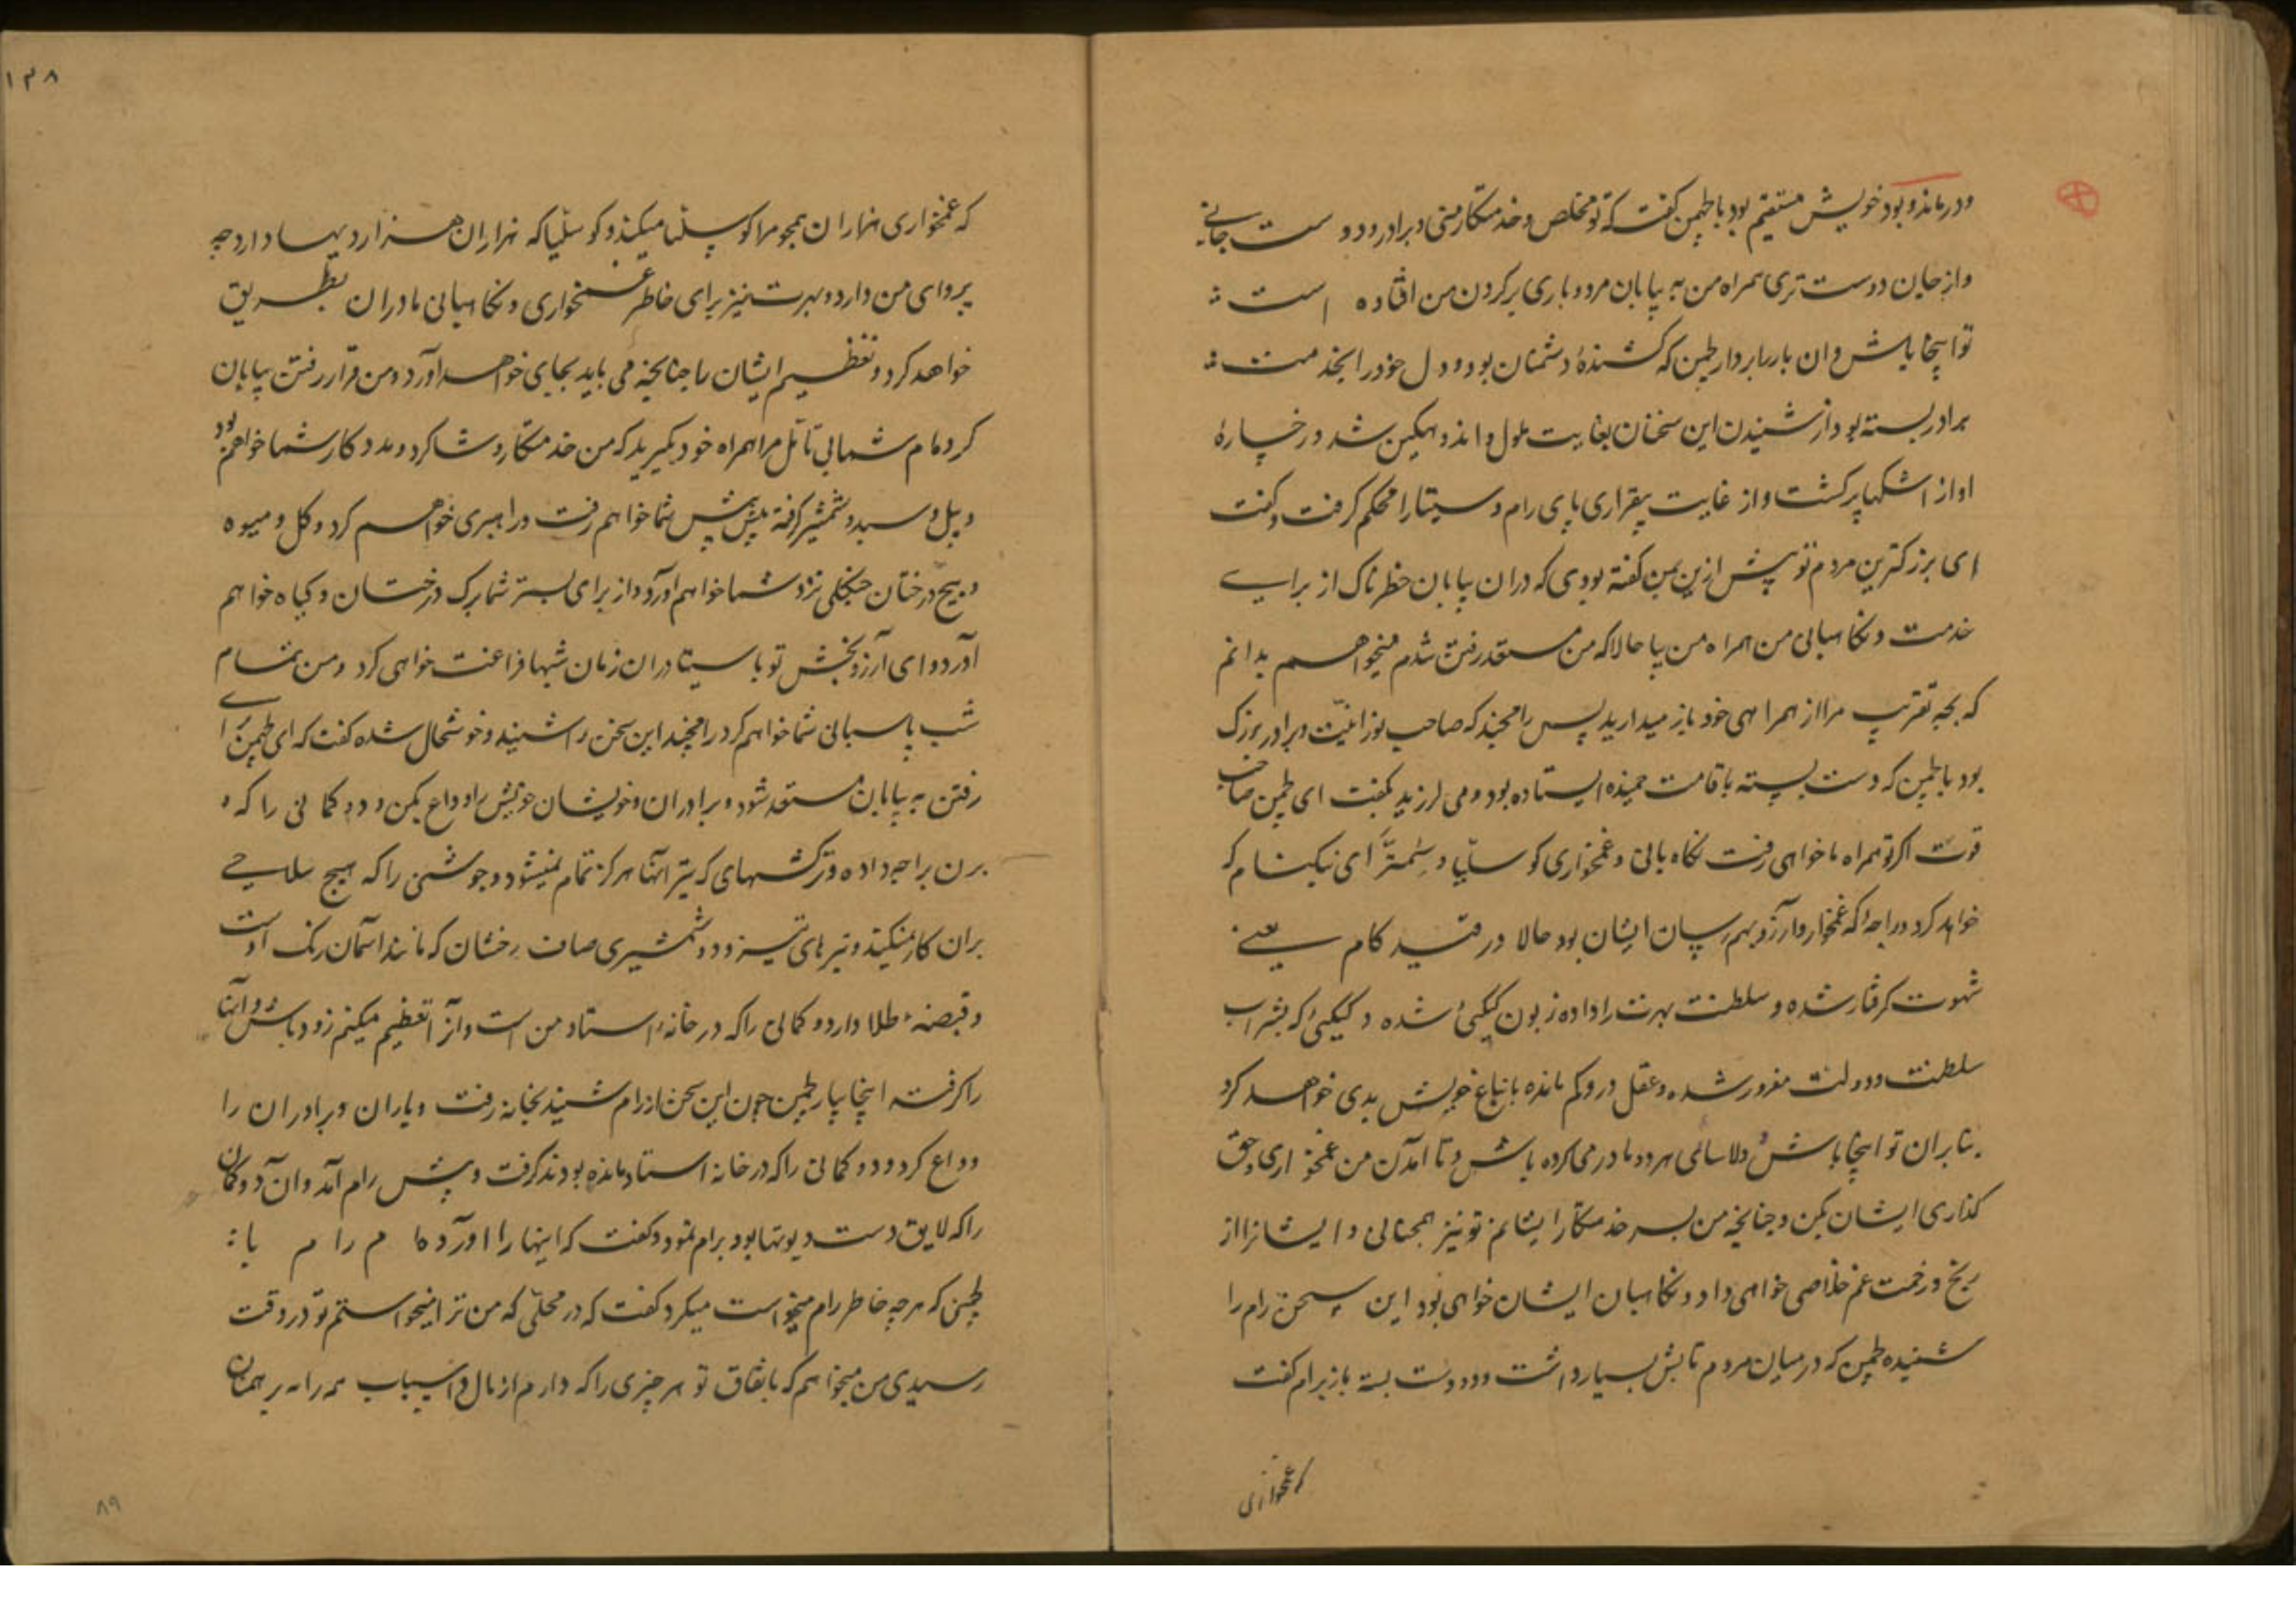 ودرماند و بود خویش مستقیم بود با لچمن گفت که تو مخلص و خدمتکار منی و برادر و دوست جانی
واز جان دوست تری همراه من به بیابان مرو و باری بر گردن من افتاده است
تو اینجا باش وان باربردار لچمن که کشندهٔ دشمنان بود و دل خود را بخدمت
برادر بسته بود از شنیدن این سخنان بغایت ملول و اندوهگین شد و رخسارهٔ
او از اشکها پر گشت و از غایت بیقراری پای رام و سیتا را محکم گرفت و گفت
ای بزرگترین مردم تو پیش ازین بمن گفته بودی که دران بیابان خطرناک از برای
خدمت و نگاهبانی من همراه من بیا حالا که من مستعد رفتن شدم میخواهم بدانم
که بچه تقریب مرا از همراهی خود باز میدارید پس رامچند که صاحب نورانیت و برادر بزرگ
بود با لچمن که دست بسته با قامت خمیده ایستاده بود و می لرزید گفت ای لچمن صاحب
قوت اگر تو همراه ما خواهی رفت نگاه بانی و غمخواری کوسلیا و سمترا ای نیکنام که
خواهد کرد و راجه که غمخوار و آرزو بهم رسان ایشان بود حالا در قید کام یعنی
شهوت گرفتار شده و سلطنت بهرت را داده زبون کیکئی شده و کیکئی که بشراب
سلطنت و دولت مغرور شده و عقل درو کم مانده با انباغ خویش بدی خواهد کرد
بنابران تو اینجا باش و دلاسای هر دو مادر می کرده باش و تا آمدن من غمخواری و حق
گذاری ایشان بکن و چنانچه من پسر خدمتگار ایشانم تو نیز همچنانی و ایشانرا از
رنج و زحمت غم خلاصی خواهی داد و نگاهبان ایشان خواهی بود این سخن رام را
شنیده لچمن که در میان مردم تابش بسیار داشت و دو دست بسته باز برام گفت
که غمخواری
۱۳۸
که غمخواری هزاران همچو مرا کوسلیا میکند و کوسلیا که هزاران هزار دیهها دارد چه
پروای من دارد و بهرت نیز برای خاطر غمخواری و نگاهبانی مادران بطریق
خواهد کرد و تعظیم ایشان را چنانچه می باید بجای خواهد آورد و من قرار رفتن بیابان
کرده ام شما بی تامل مرا همراه خود بگیرید که من خدمتگار و شاگرد و مددکار شما خواهم بود
و بیل و سبد و شمشیر گرفته پیش پیش شما خواهم رفت و راهبری خواهم کرد و گل و میوه
و بیخ درختان جنگلی نزد شما خواهم آورد و از برای بستر شما برگ درختان و گیاه خواهم
آورد و ای آرزوبخش تو با سیتا دران زمان شبها فراغت خواهی کرد و من تمام
شب پاسبانی شما خواهم کرد رامچند این سخن را شنید و خوشحال شده گفت که ای لچمن برای
رفتن به بیابان مستعد شود و برادران و خویشان خویش را وداع بکن و دو کمانی را که
برن براجه داده و ترکشهای که تیر آنها هرگز تمام نمیشود و جوشنی را که هیچ سلاحی
بران کار نمیکند و تیرهای تیز و دو شمشیری صاف رخشان که مانند آسمان رنگ اوست
و قبضهٔ طلا دارد و کمانی را که در خانهٔ استاد من است و آنرا تعظیم میکنم زود باش و آنها
را گرفته اینجا بیار لچمن چون این سخن از رام شنید بخانه رفت و یاران و برادران را
وداع کرد و دو کمانی را که در خانه استاد مانده بودند گرفت و پیش رام آمد و آن دو کمان
را که لایق دست دیوتها بود برام نمود و گفت که اینها را آورده ام رام با
لچمن که هرچه خاطر رام میخواست میکرد گفت که در محلی که من ترا میخواستم تو در وقت
رسیدی من میخواهم که باتفاق تو هر چیزی را که دارم از مال و اسباب همه را به برهمنان
۸۹